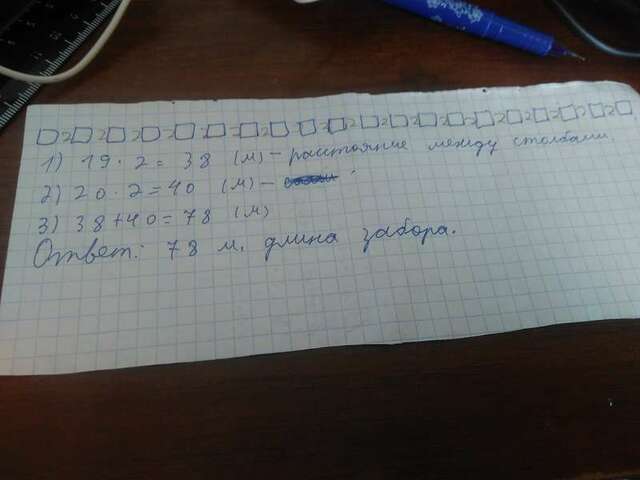 2 2 2 2 2 2 2 2 2 2 2 2 2 2 2 2 2 2 2
1) 19 · 2 = 38 (м) – расстояние между столбами.
2) 20 · 2 = 40 (м) –
3) 38 + 40 = 78 (м)
Ответ: 78 м. длина забора.